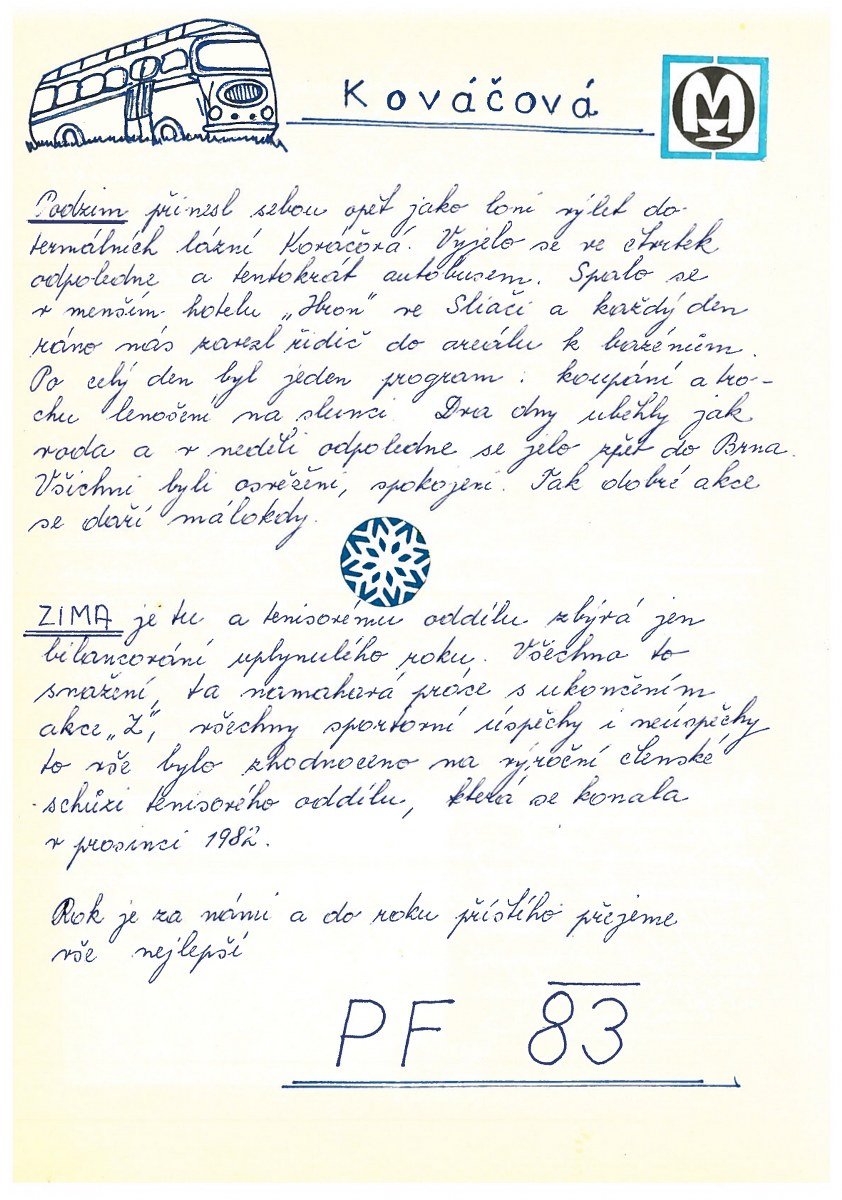 Kováčová
M
Podzim přinesl sebou opět jako loni výlet do
termálních lázní Kováčová. Vyjelo se ve čtvrtek
odpoledne a tentokrát autobusem. Spalo se
v menším hotelu „Hron" ve Sliači a každý den
ráno nás zavezl řidič do areálu k bazénům.
Po celý den byl jeden program: koupání a tro-
chu lenošení na slunci. Dva dny uběhly jak
voda a v neděli odpoledne se jelo zpět do Brna.
Všichni byli osvěženi, spokojeni. Tak dobré akce
se daří málokdy.
ZIMA je tu a tenisovému oddílu zbývá jen
bilancování uplynulého roku. Všechno to
snažení, ta namahavá práce s ukončením
akce „Z", všechny sportovní úspěchy i neúspěchy
to vše bylo zhodnoceno na výroční členské
schůzi tenisového oddílu, která se konala
v prosinci 1982.
Rok je za námi a do roku příštího přejeme
vše nejlepší
PF 83